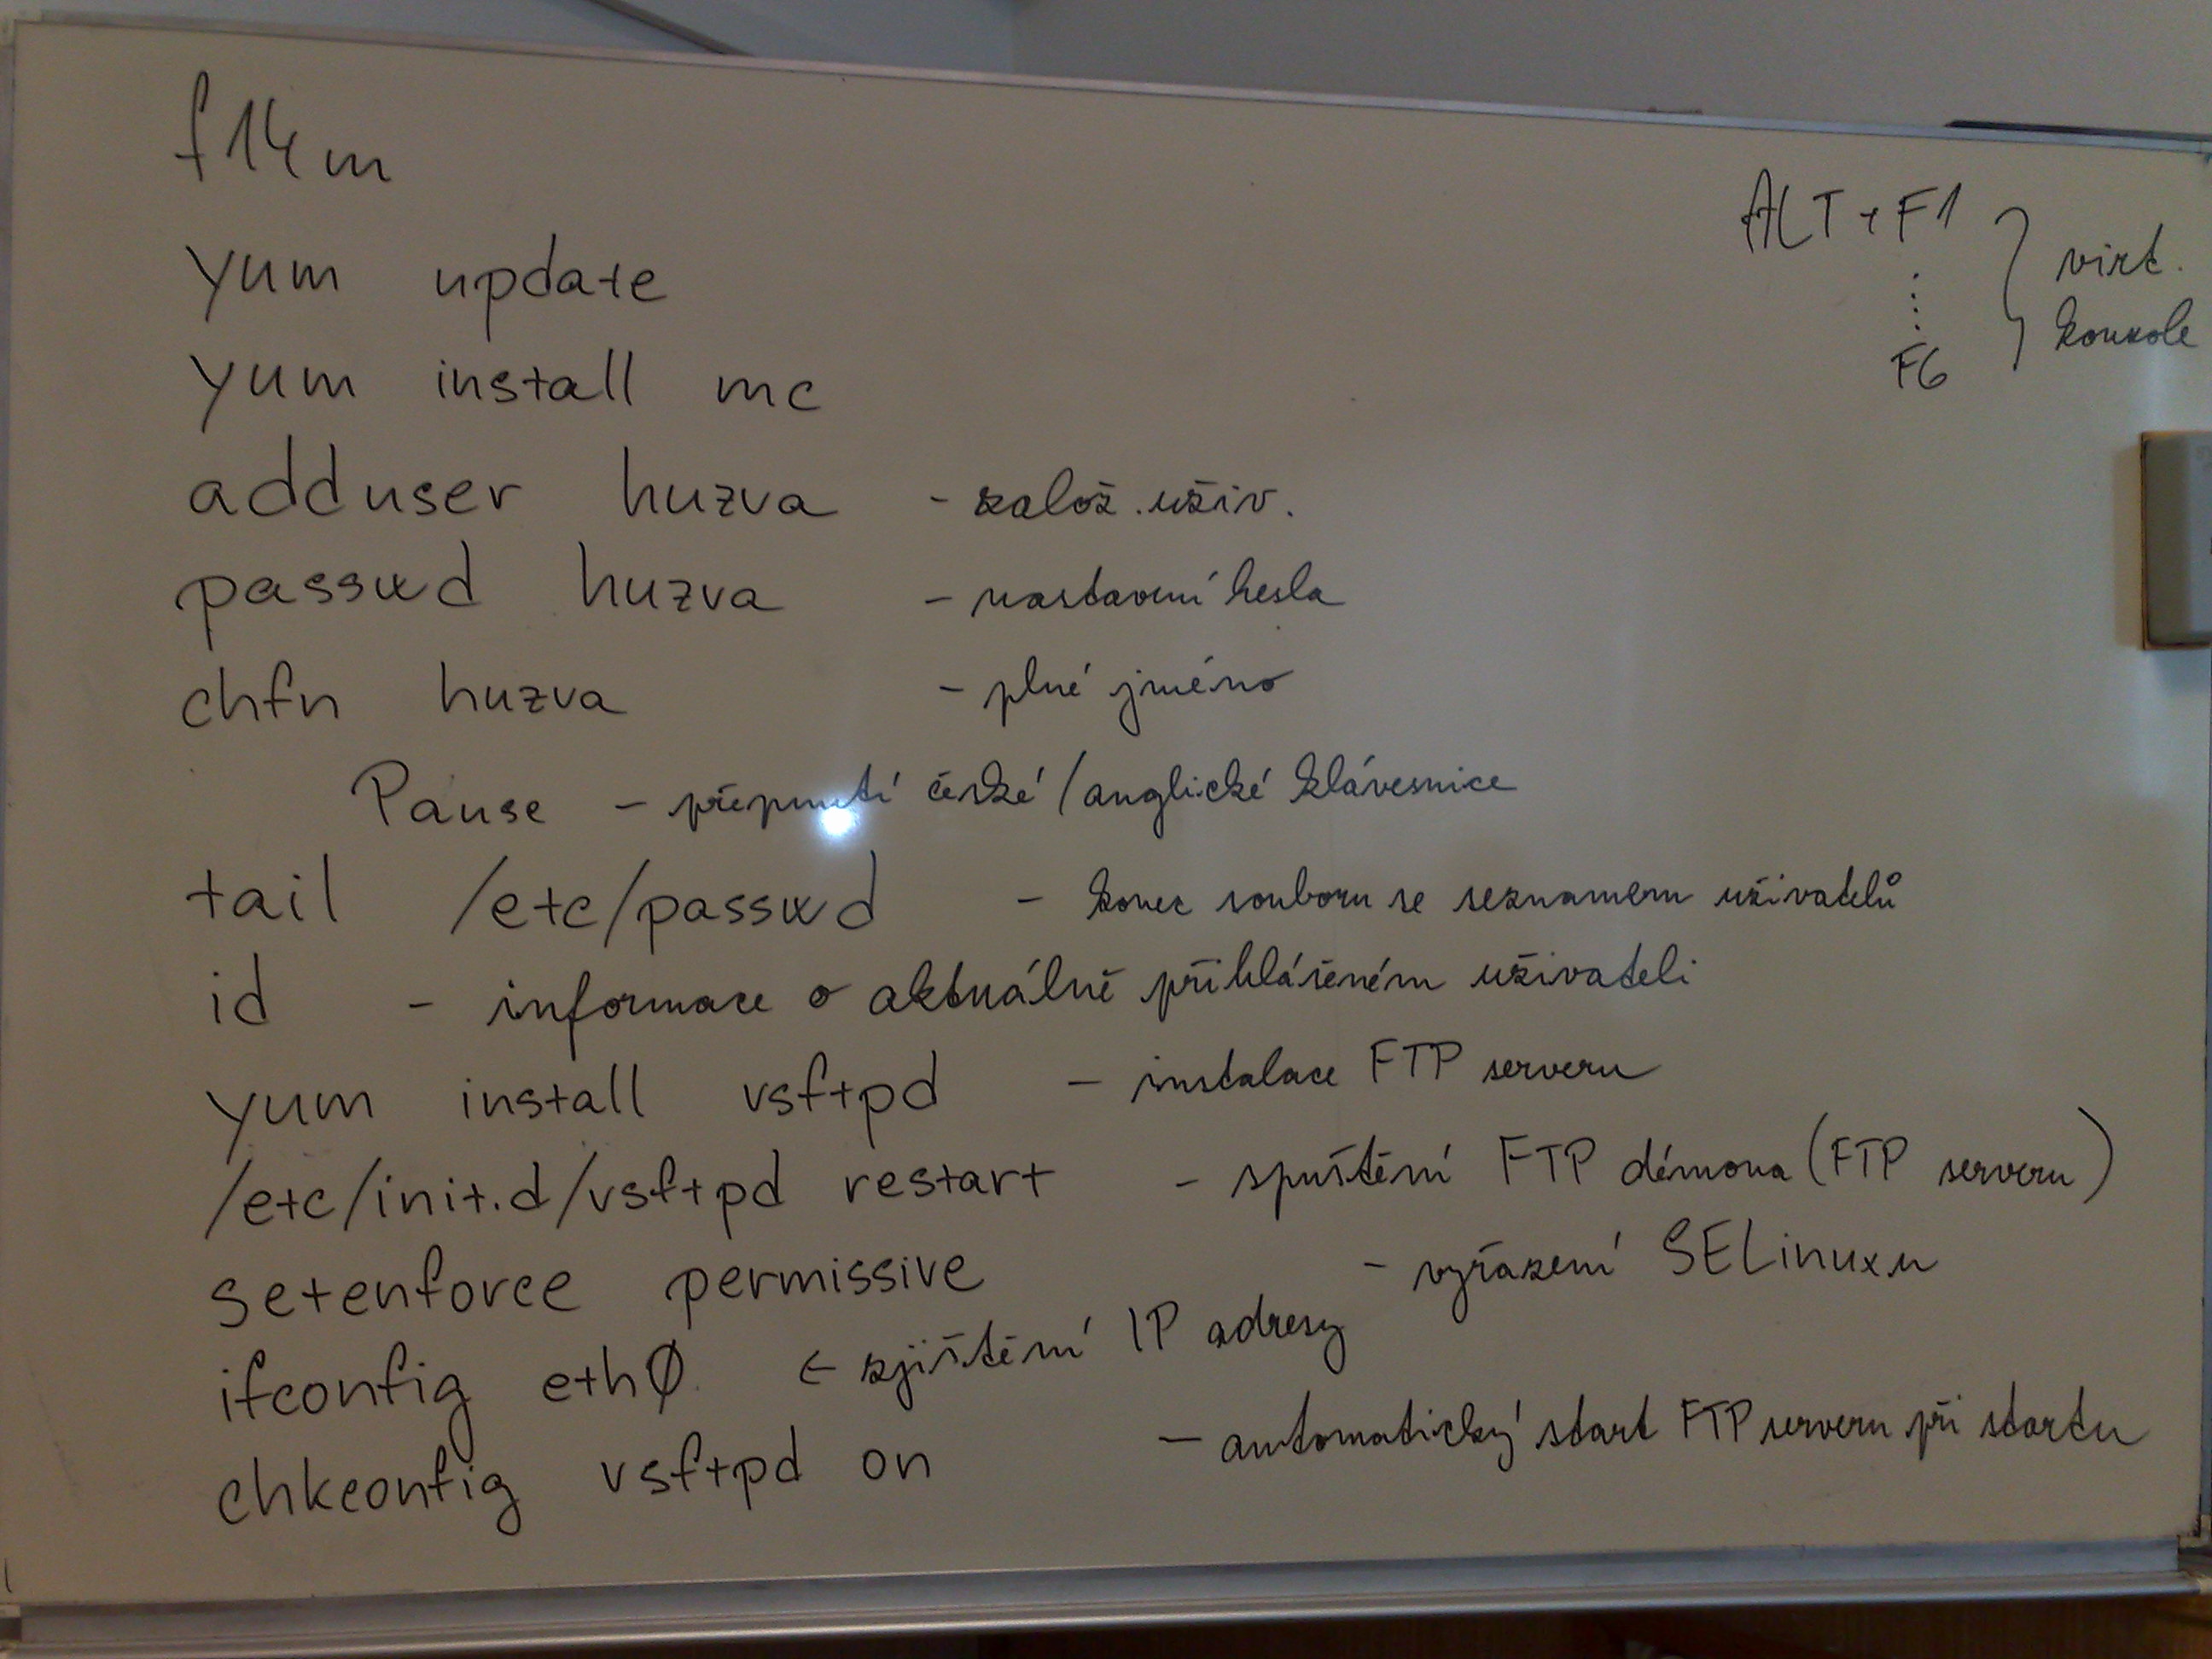 f14m
ALT + F1
⋮
F6
virt.
konzole
yum update
yum install mc
adduser huzva - založ. uživ.
passwd huzva - nastavení hesla
chfn huzva - plné jméno
Pause - přepnutí české/anglické klávesnice
tail /etc/passwd - konec souboru se seznamem uživatelů
id - informace o aktuálně přihlášeném uživateli
yum install vsftpd - instalace FTP serveru
/etc/init.d/vsftpd restart - spuštění FTP démona (FTP serveru)
setenforce permissive - vyřazení SELinuxu
ifconfig eth0 ← zjištění IP adresy
chkconfig vsftpd on - automatický start FTP serveru při startu